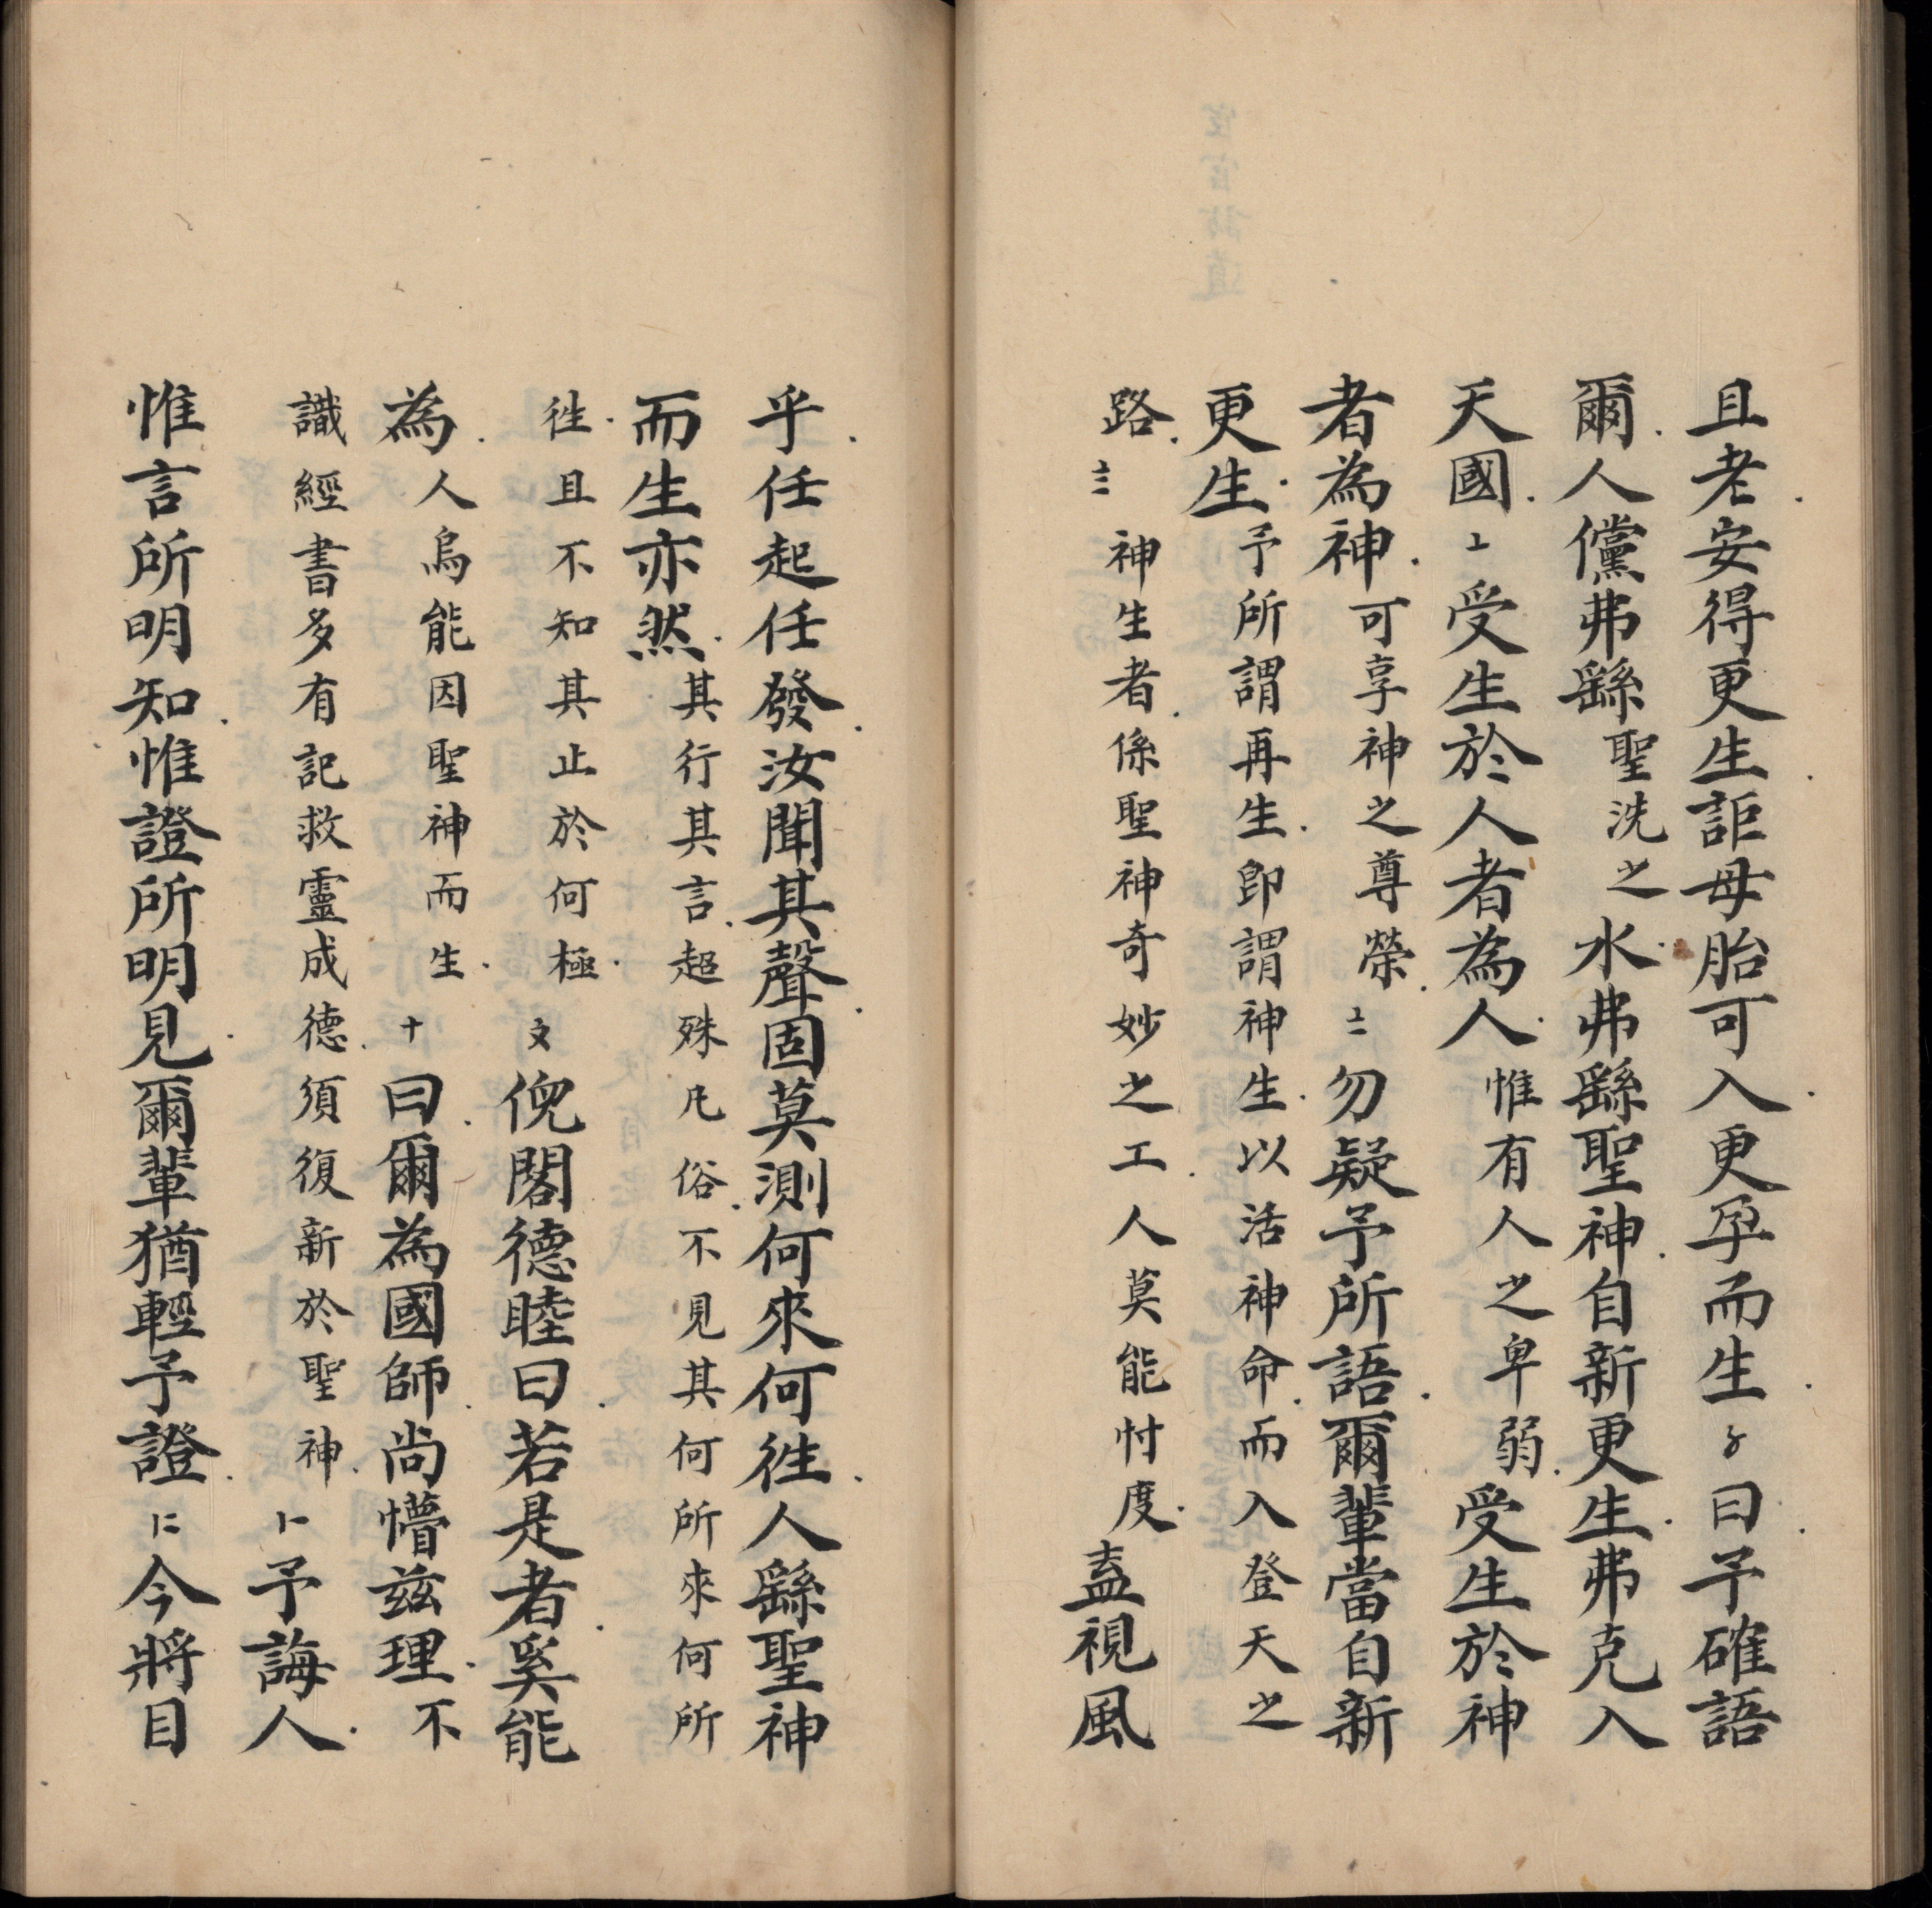 且老安得更生詎母胎可入更孕而生〥曰予確語
爾人儻弗繇聖洗之水弗繇聖神自新更生弗克入
天國〦受生於人者為人惟有人之卑弱受生於神
者為神可享神之尊榮〧勿疑予所語爾輩當自新
更生予所謂再生即謂神生以活神命而入登天之
路〨神生者係聖神奇妙之工人莫能忖度盍視風
乎任起任發汝聞其聲固莫測何來何徃人繇聖神
而生亦然其行其言超殊凡俗不見其何所來何所
徃且不知其止於何極〩倪閣德睦曰若是者奚能
為人烏能因聖神而生十曰爾為國師尚懵茲理不
識經書多有記救靈成德須復新於聖神〡予誨人
惟言所明知惟證所明見爾輩猶輕予證〢今將目